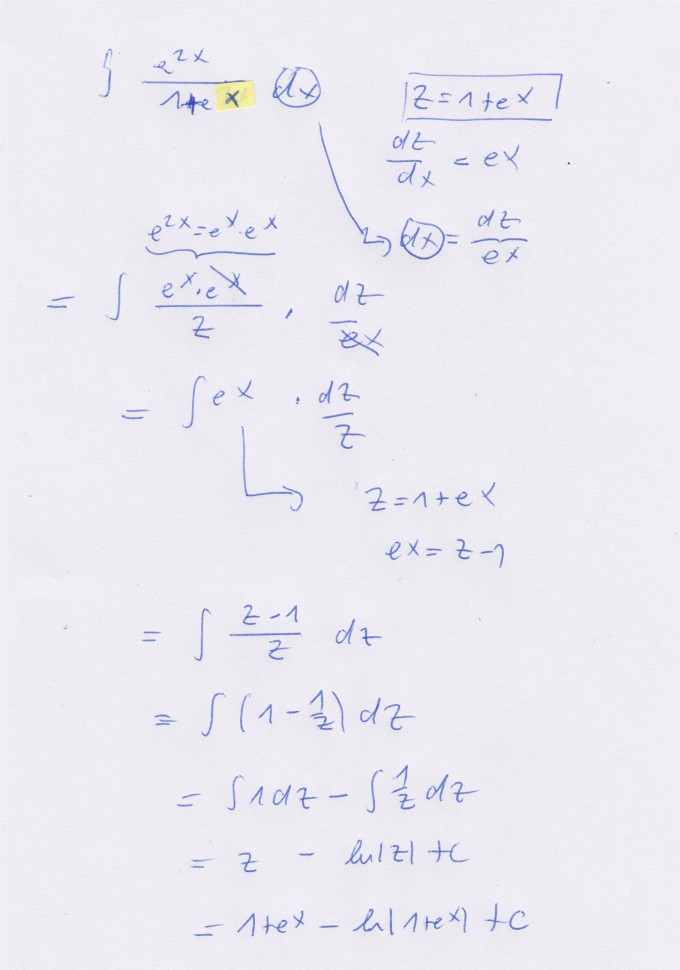 ∫ e^{2x}/(1+e^x) dx
z = 1+e^x
dz/dx = e^x
dx = dz/e^x
e^{2x} = e^x · e^x
= ∫ (e^x · e^x)/z · dz/e^x
= ∫ e^x · dz/z
z = 1+e^x
e^x = z-1
= ∫ (z-1)/z dz
= ∫ (1 - 1/z) dz
= ∫ 1 dz - ∫ 1/z dz
= z - ln|z| + c
= 1+e^x - ln|1+e^x| + c